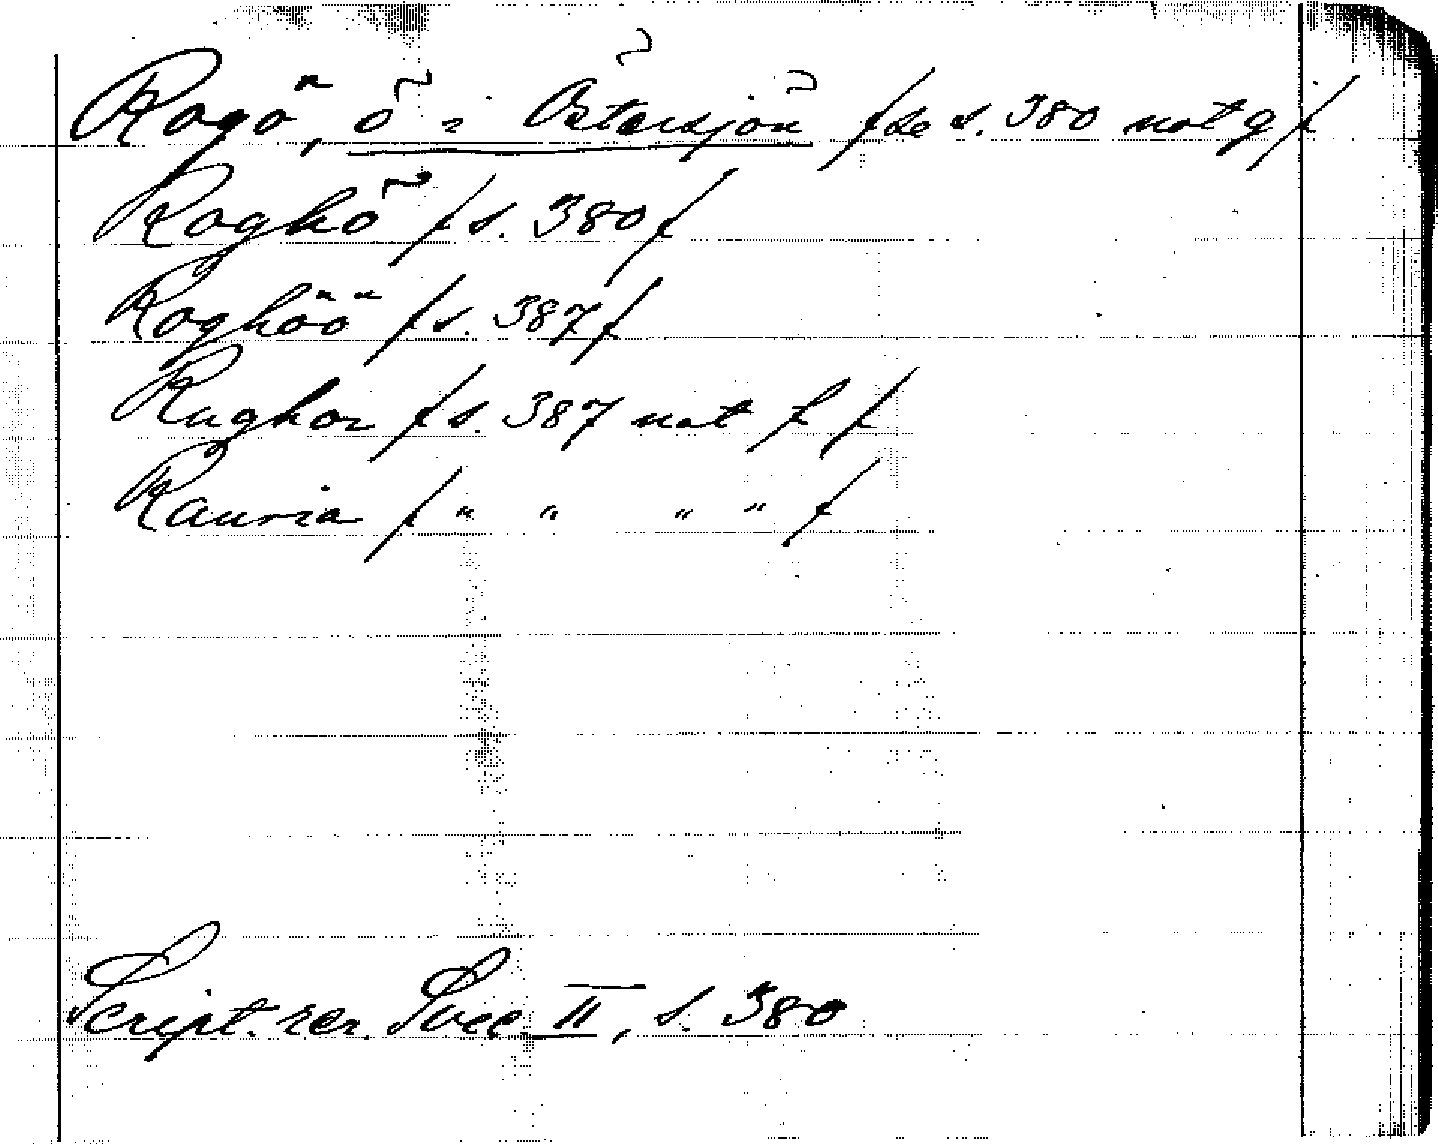 Rogö, ö i Östersjön /se s. 380 not g/
Roghö /s. 380/
Roghöö /s. 387/
Rughor /s. 387 not f /
Rauria / " " " " /
Script. rer. Svec. II, s. 380